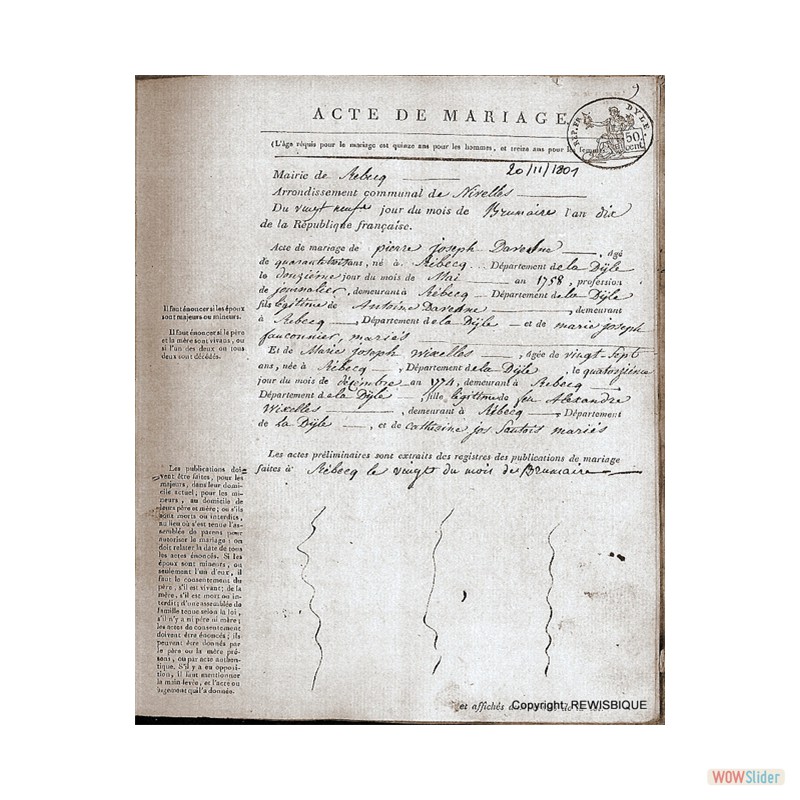 9
ACTE DE MARIAGE
REP. FRA. DYLE.
50 cent
(L'âge réquis pour le mariage est quinze ans pour les hommes, et treize ans pour les femmes
20/11/1801
Mairie de Rebecq
Arrondissement communal de Nivelles
Du vingt neuf jour du mois de Brumaire l'an dix
de la République française.
Acte de mariage de pierre joseph Davenne, âgé
de quarante ans, né à Rébecq Département de la Dÿle
le douzième jour du mois de Mai an 1758, profession
de journalier, demeurant à Rébecq Département de la Dÿle
fils légitime de Antoine Davenne, demeurant
à Rebecq, Département de la Dÿle et de marie joseph
fauconnier, mariés
Et de Marie joseph Wixelles, âgée de vingt-sept
ans, née à Rébecq, Département de la Dÿle, le quatorzième
jour du mois de décembre an 1774, demeurant à Rebecq
Département de la Dÿle, fille légitime de feu Alexandre
Wixelles, demeurant à Rébecq, Département
de la Dÿle, et de catherine jos Sautois mariés
Les actes préliminaires sont extraits des registres des publications de mariage
faites à Rébecq le vingt du mois de Brumaire
Il faut énoncer si les époux
sont majeurs ou mineurs.
Il faut énoncer si le père
et la mère sont vivans, ou
si l'un des deux ou tous
deux sont décédés.
Les publications doi-
vent être faites, pour les
majeurs, dans leur domi-
cile actuel; pour les mi-
neurs, au domicile de
leurs père et mère; ou s'ils
sont morts ou interdits,
au lieu où s'est tenue l'as-
semblée de parens pour
autoriser le mariage: on
doit relater la date de tous
les actes énoncés. Si les
époux sont mineurs, ou
seulement l'un d'eux, il
faut le consentement du
père, s'il est vivant; de la
mère, s'il est mort ou in-
terdit; d'une assemblée de
famille tenue selon la loi,
s'il n'y a ni père ni mère;
les actes de consentement
doivent être énoncés; ils
peuvent être donnés par
le père ou la mère pré-
sens, ou par acte authen-
tique. S'il y a eu opposi-
tion, il faut mentionner
la main levée, et l'acte ou
jugement qui l'a donnée.
et affichés
Copyright: REWISBIQUE
WOWSlider